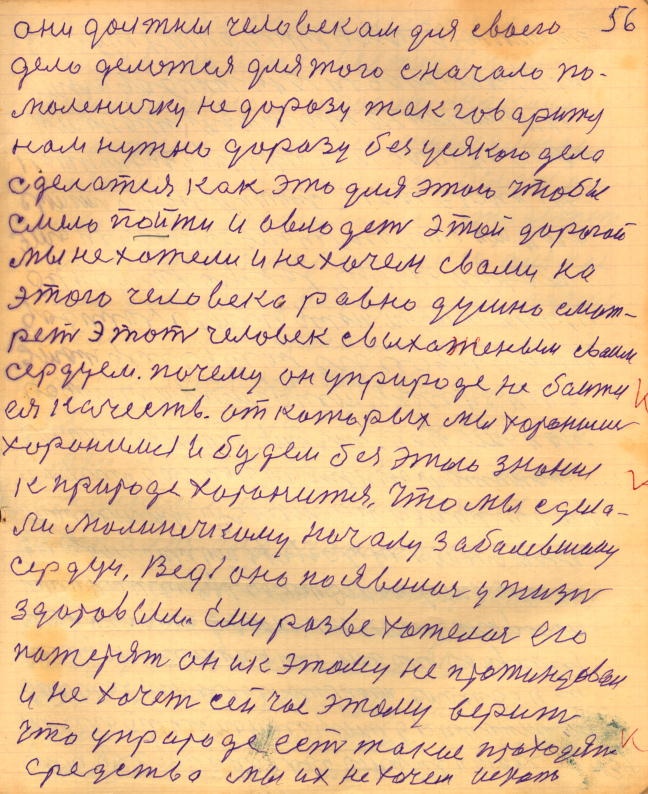 56
они должны человекам для своего
дела делотся для того сначало по-
моленичку недоразу так говарится
нам нужно доразу без усякого дела
сделатся как это для этого чтобы
смело пойти и овлодет этой дорогой
мы не хотели и не хочем с вами на
этого человека равно душно смот-
рет этот человек с выхаженым сваим
сердцем. почему он у природе не баится
ея качеств. от которых мы хоронили
хоронимся и будем без этого знания
к природе хоронится. Что мы сдела-
ли малинечкому началу забалевшаму
сердцу, Вед! оно появилося у жизни
здоровым. Ему разве хотелося его
потерят он и к этому не
и не хочет сейчас этому верит
что у природе ест такие проходят
средства мы их не хочем искать